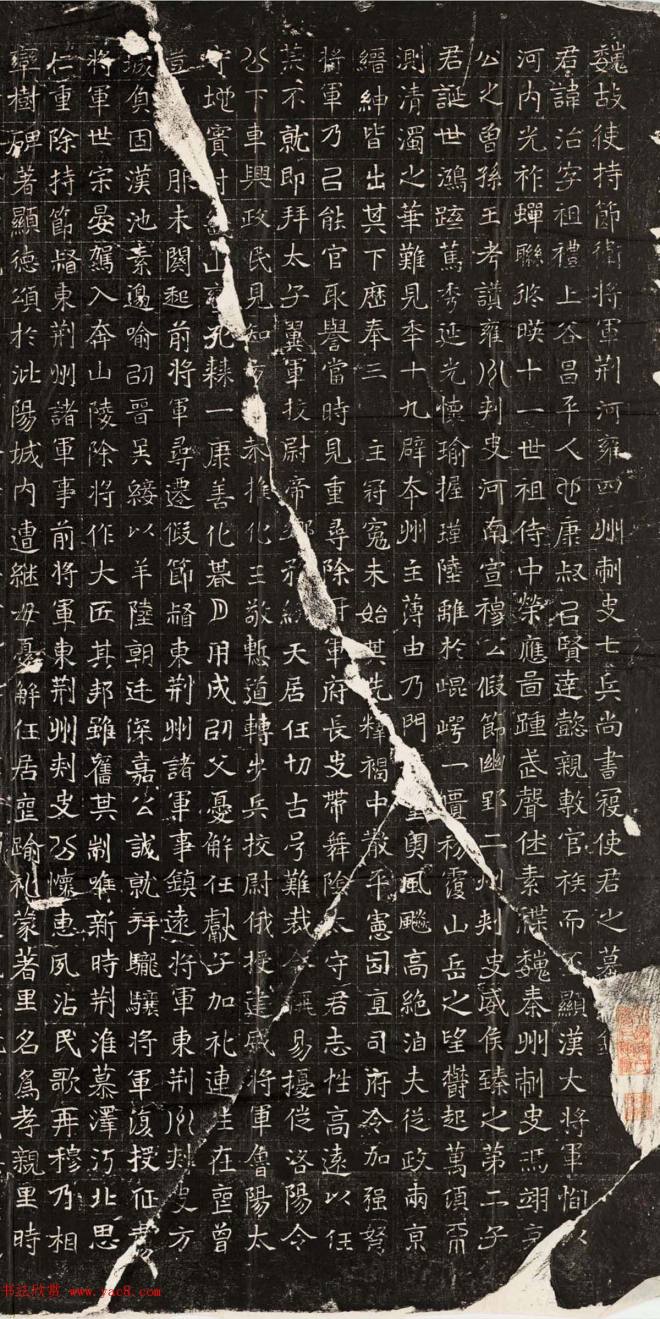 魏故使持節衛將軍荊河雍四州刺史七兵尚書寇使君之墓
君諱治字祖禮上谷昌平人也康叔召賢達懿親敷官族而丕顯漢大將軍恂以
河內光祚蟬聯終暎十一世祖侍中榮應啚踵武聲素牒魏秦州刺史馮翊哀
公之曾孫王考讚雍州刺史河南宣穆公假節幽郢二州刺史威侯臻之第二子
君誕世鴻蹤篤秀延光懷瑜握瑾陸離於崐崿一匱初覆山岳之望欝起萬頃
測清濁之華難見秊十九辟夲州主薄由乃門望奧風飈高絶洎夫從政兩京
縉紳皆出其下歷奉三主冠冕未始其先釋褐中散平憲直司府令加强弩
將軍乃召能官取譽當時見重尋除軍府長史帶舞陰太守君志性高遠以任
不就即拜太子翼軍校尉帝天居任切古号難裁易擾從洛陽令
公下車興政民見知推化三敬慙道轉步兵校尉俄授建威將軍魯陽太
守地實山孔棘一康善化朞月用成召父憂解任獻子加礼連在堊曾
豈服未闋起前將軍尋遷假節督東荊州諸軍事鎮遠將軍東荊州刺史方
城負固漢池素邊喻召晉吴綏以羊陸朝迋深嘉公誠就拜驪驤將軍復授征
將軍世宗晏駕入奔山陵除將作大匠其邦雖舊其制唯新時荊淮慕澤沔北思
仁重除持節督東荊州諸軍事前將軍東荊州刺史公懷惠夙沾民歌再穆乃相
率樹碑著顯德頌於沘陽城內遭継母憂解任居堊踰礼蒙著里名為孝親里時
书法欣赏 www.yac8.com